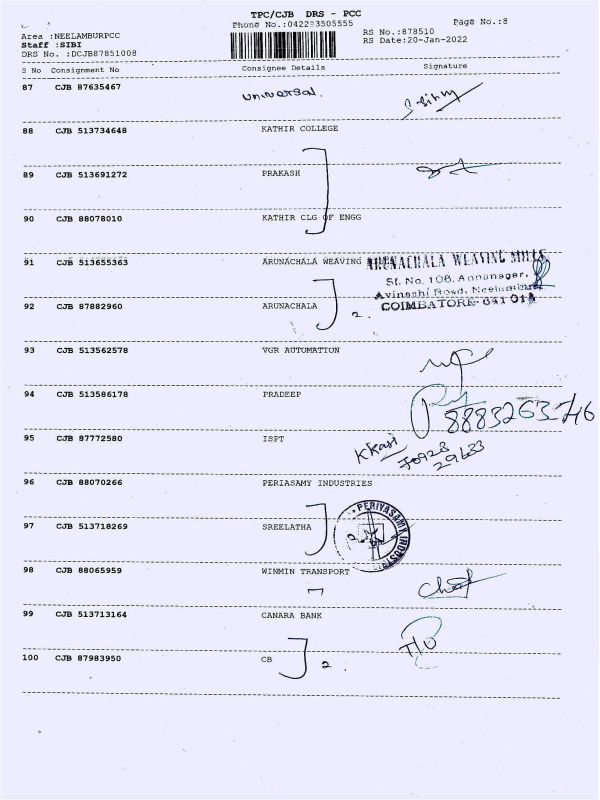 TPC/CJB DRS - PCC
Phone No.:04223505555 Page No.:8
Area :NEELAMBURPCC RS No.:878510
Staff :SIBI RS Date:20-Jan-2022
DRS No. :DCJB87851008
S No Consignment No Consignee Details Signature
87 CJB 87635467 Universal
88 CJB 513734648 KATHIR COLLEGE
89 CJB 513691272 PRAKASH
90 CJB 88078010 KATHIR CLG OF ENGG
91 CJB 513655363 ARUNACHALA WEAVING
ARUNACHALA WEAVING MILLS
Sf. No. 106, Annanagar,
Avinashi Road, Neelambur
COIMBATORE- 641 014
92 CJB 87882960 ARUNACHALA 2.
93 CJB 513562578 VGR AUTOMATION
94 CJB 513586178 PRADEEP
8883263746
95 CJB 87772580 ISPT
29633
96 CJB 88070266 PERIASAMY INDUSTRIES
97 CJB 513718269 SREELATHA
PERIYASAMY INDUSTR
98 CJB 88065959 WINMIN TRANSPORT
99 CJB 513713164 CANARA BANK
100 CJB 87983950 CB 2.